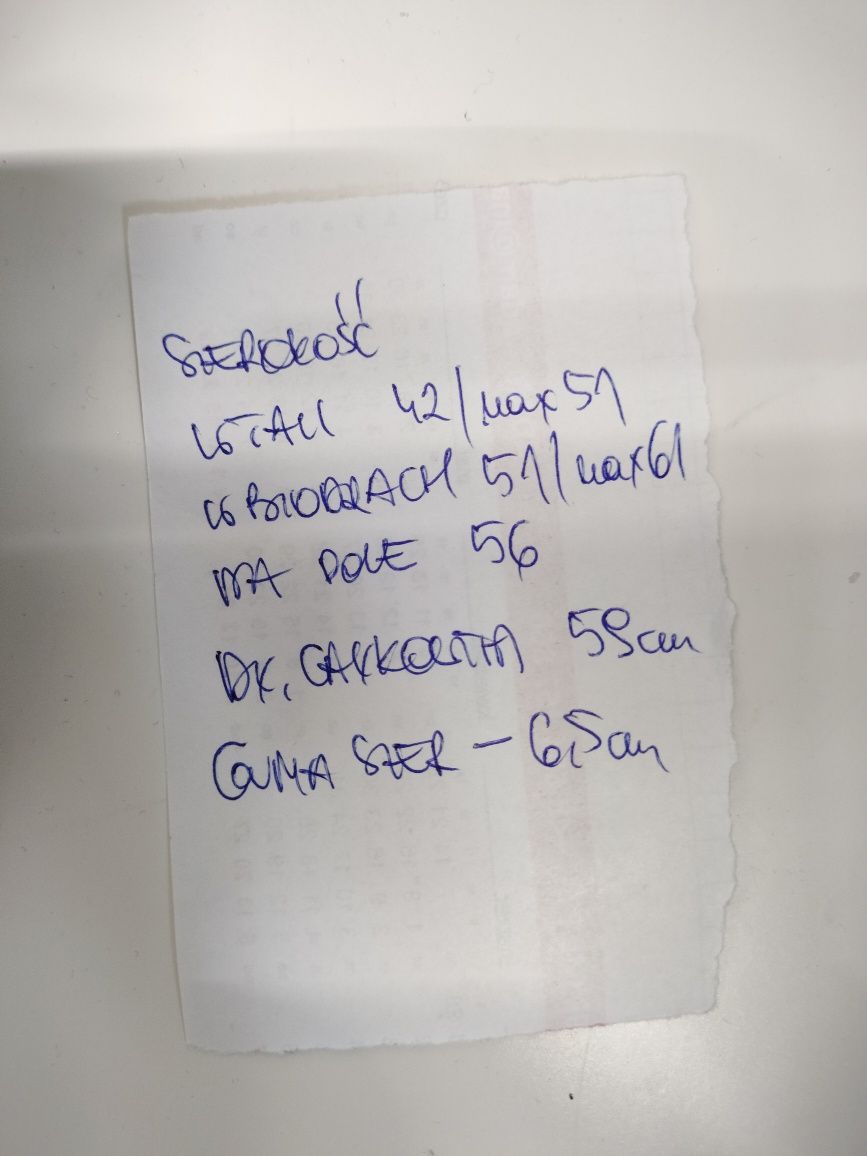 SZEROKOŚĆ
W TALII 42/max 51
W BIODRACH 51/max 61
NA DOLE 56
DŁ. CAŁKOWITA 59cm
GUMA SZER - 6,5cm